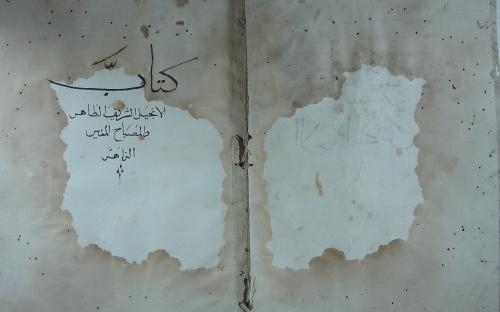 كتاب
الانجيل الشريف الطاهر
والمصباح المنير
الزاهر